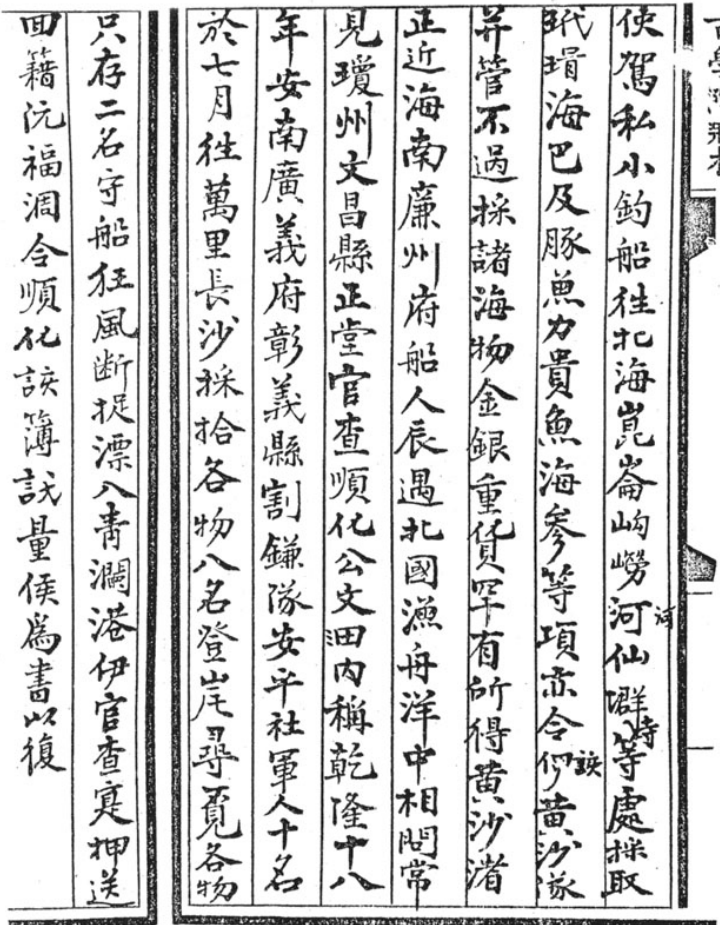 使駕私小釣船往北海崑崙岣嶗河仙群等處採取
玳瑁海巴及豚魚力貴魚海參等項亦令伊該黃沙隊
并管不過採諸海物金銀重貨罕有所得黃沙渚
正近海南廉州府船人辰遇北國漁舟洋中相問常
見瓊州文昌縣正堂官查順化公文内稱乾隆十八
年安南廣義府彰義縣割鎌隊安平社軍人十名
於七月往萬里長沙採拾各物八名登岸尋覓各物
只存二名守船狂風断捉漂入青瀾港伊官查寔押送
回籍沅福凋令順化該簿識量侯為書以復